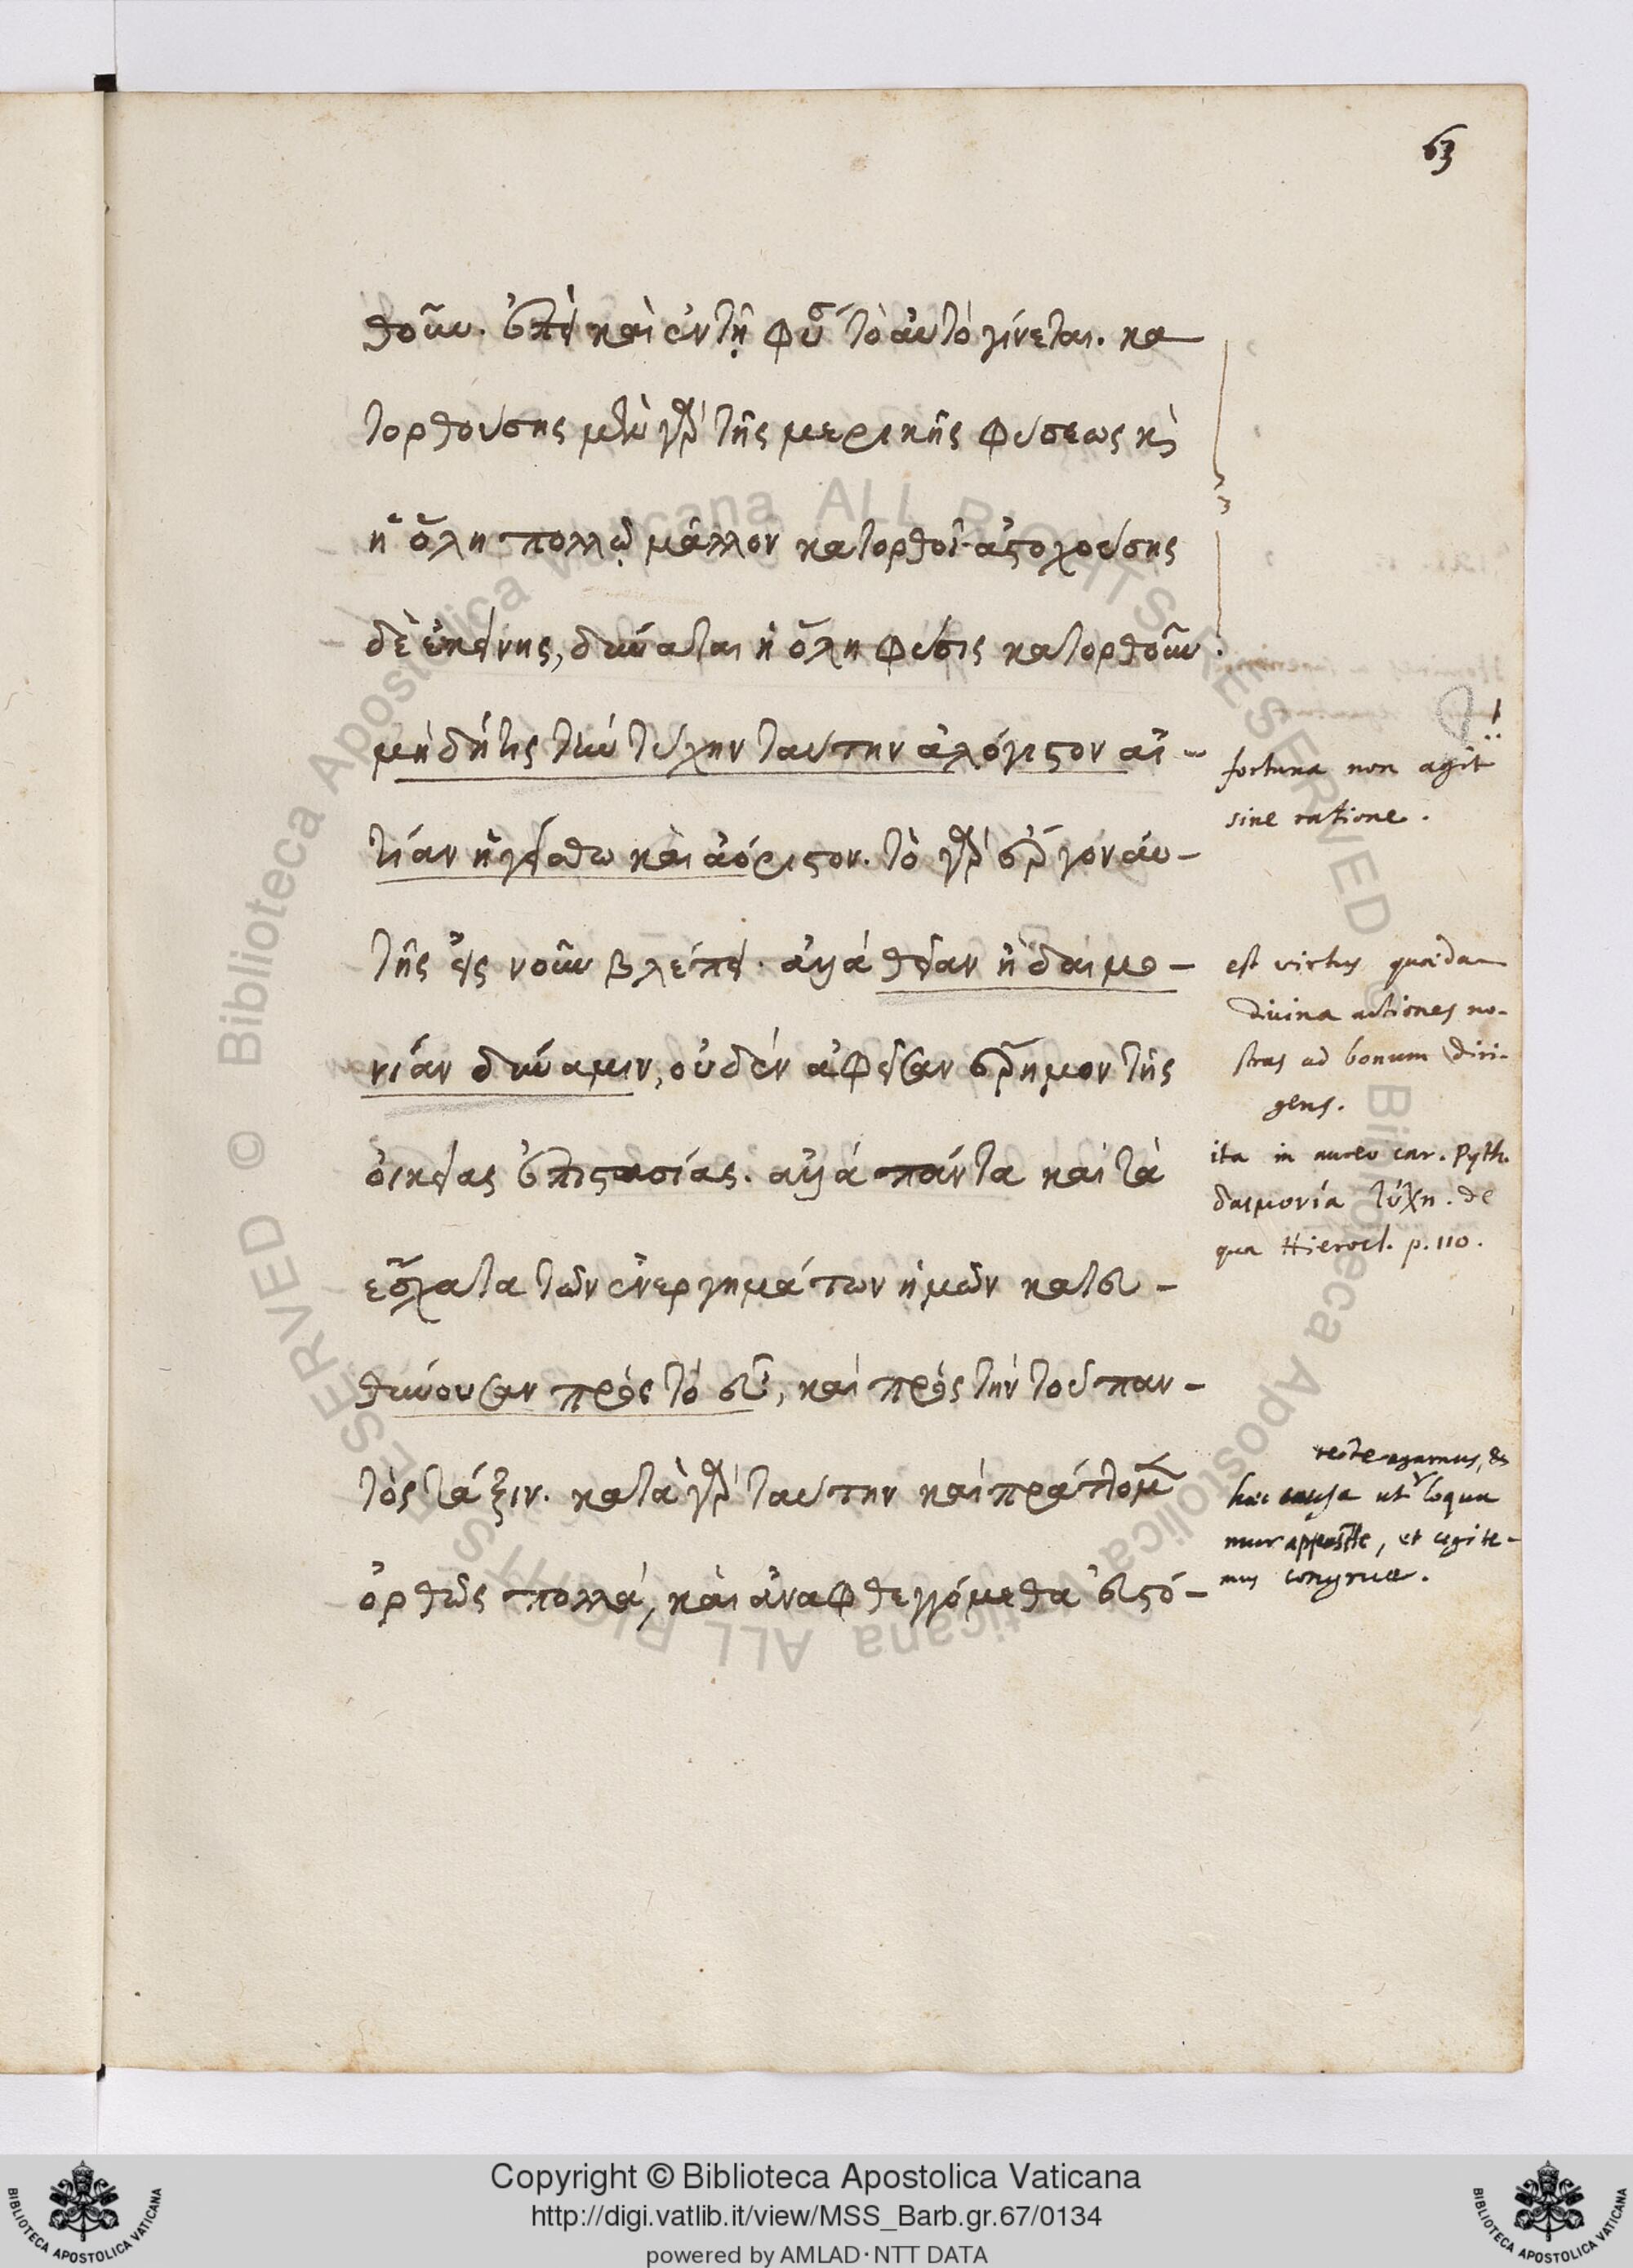 63
θοῦν. ἐπεὶ καὶ ἐν τῇ φύσει τὸ αὐτὸ γίνεται. κα
τορθούσης μὲν γὰρ τῆς μερικῆς φύσεως καὶ
ἡ ὅλη πολλῷ μᾶλλον κατορθοῖ. ἀστοχούσης
δὲ ἐκείνης, δύναται ἡ ὅλη φύσις κατορθοῦν.
μὴ δή τις τὴν τύχην ταύτην ἀλόγιστον αἰ-
τίαν ἡγείσθω καὶ ἀόριστον. τὸ γὰρ ἔργον αὐ-
τῆς εἰς νοῦν βλέπει. ἀλλὰ θείαν ἢ δαιμο-
νίαν δύναμιν, οὐδὲν ἀφεῖσαν ἔρημον τῆς
οἰκείας ἐπιστασίας. ἀλλὰ πάντα καὶ τὰ
ἔσχατα τῶν ἐνεργημάτων ἡμῶν κατευ-
θύνουσαν πρὸς τὸ εὖ, καὶ πρὸς τὴν τοῦ παν-
τὸς τάξιν. κατὰ γὰρ ταύτην καὶ πράττομεν
ὀρθῶς πολλά, καὶ ἀναφθεγγόμεθα εὐστό-
fortuna non agit
sine ratione.
est virtus quædam
divina actiones no-
stras ad bonum diri-
gens.
ita in aureo car. Pyth.
δαιμονία τύχη. de
qua Hierocl. p. 110.
recte agamus, &
hæc causa ut loqua
mur apposite, et cogite-
mus congrue.
Biblioteca Apostolica Vaticana ALL RIGHTS RESERVED ©
Biblioteca Apostolica Vaticana ALL RIGHTS RESERVED ©
Copyright © Biblioteca Apostolica Vaticana
http://digi.vatlib.it/view/MSS_Barb.gr.67/0134
powered by AMLAD·NTT DATA
BIBLIOTECA APOSTOLICA VATICANA
BIBLIOTECA APOSTOLICA VATICANA